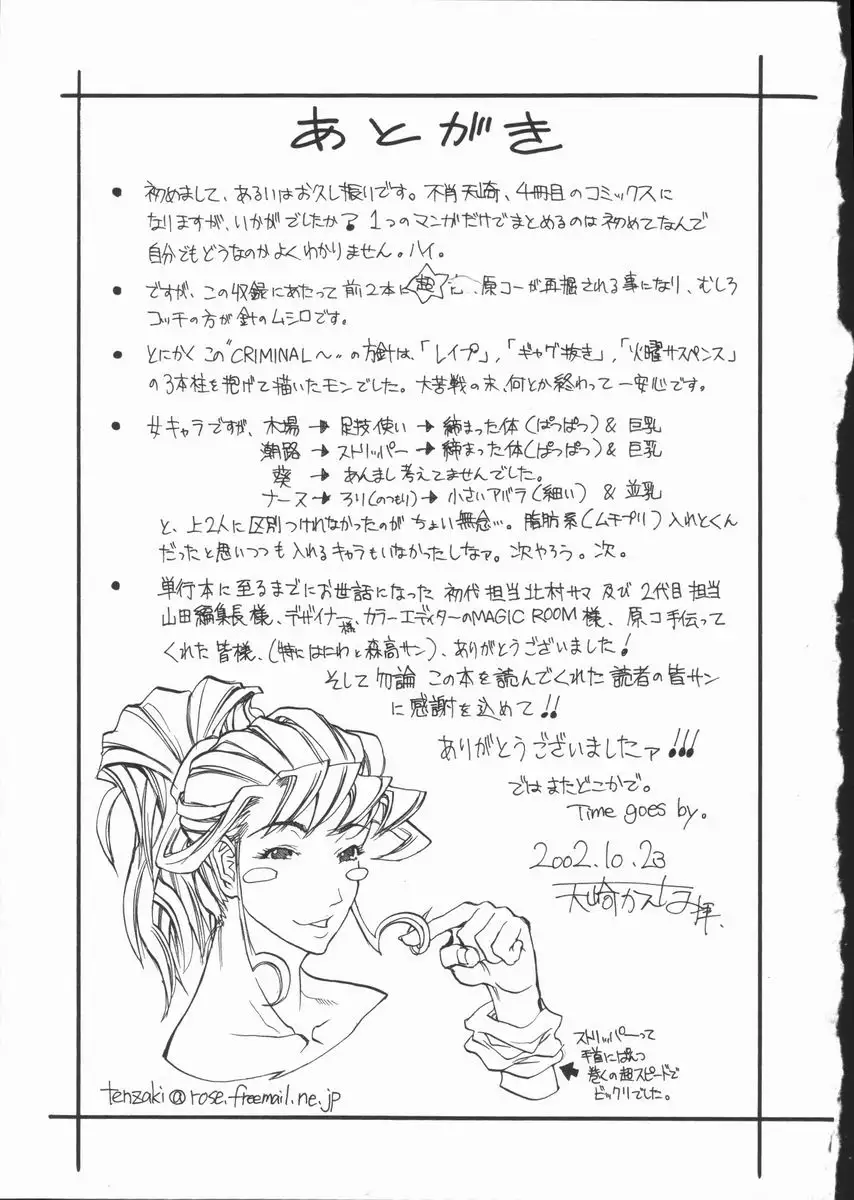 あとがき
● 初めまして、あるいはお久し振りです。不肖天崎、4冊目のコミックスに
なりますが、いかがでしたか？1つのマンガだけでまとめるのは初めてなんで
自分でもどうなのかよくわかりません。ハイ。
● ですが、この収録にあたって前2本に超 原コーが再掘される事になり、むしろ
コッチの方が針のムシロです。
● とにかくこの“CRIMINAL〜”の方針は、「レイプ」,「ギャグ抜き」,「火曜サスペンス」
の3本柱を掲げて描いたモンでした。大苦戦の末、何とか終わって一安心です。
● 女キャラですが、木場→足技使い→締まった体(ぱっぱつ)& 巨乳
潮路→ストリッパー→締まった体(ぱっぱつ)& 巨乳
葵→あんまし考えてませんでした。
ナース→ろり(のつもり)→小さいアバラ(細い) & 並乳
と、上2人に区別つけれなかったのがちょい無念…。脂肪系(ムチプリ)入れとくん
だったと思いつつも入れるキャラもいなかったしなァ。次やろう。次。
● 単行本に至るまでにお世話になった 初代担当北村サマ 及び 2代目担当
山田編集長様、デザイナー様、カラーエディターのMAGIC ROOM様、原コ手伝って
くれた皆様、(特にはにわと森高サン)、ありがとうございました!
そして勿論 この本を読んでくれた読者の皆サン
に感謝を込めて!!
ありがとうございましたァ!!!
ではまたどこかで。
Time goes by.
2002.10.23
天崎かんな拝、
ストリッパーって
手首にぱんつ
巻くの超スピードで
ビックリでした。
tenzaki@rose.freemail.ne.jp